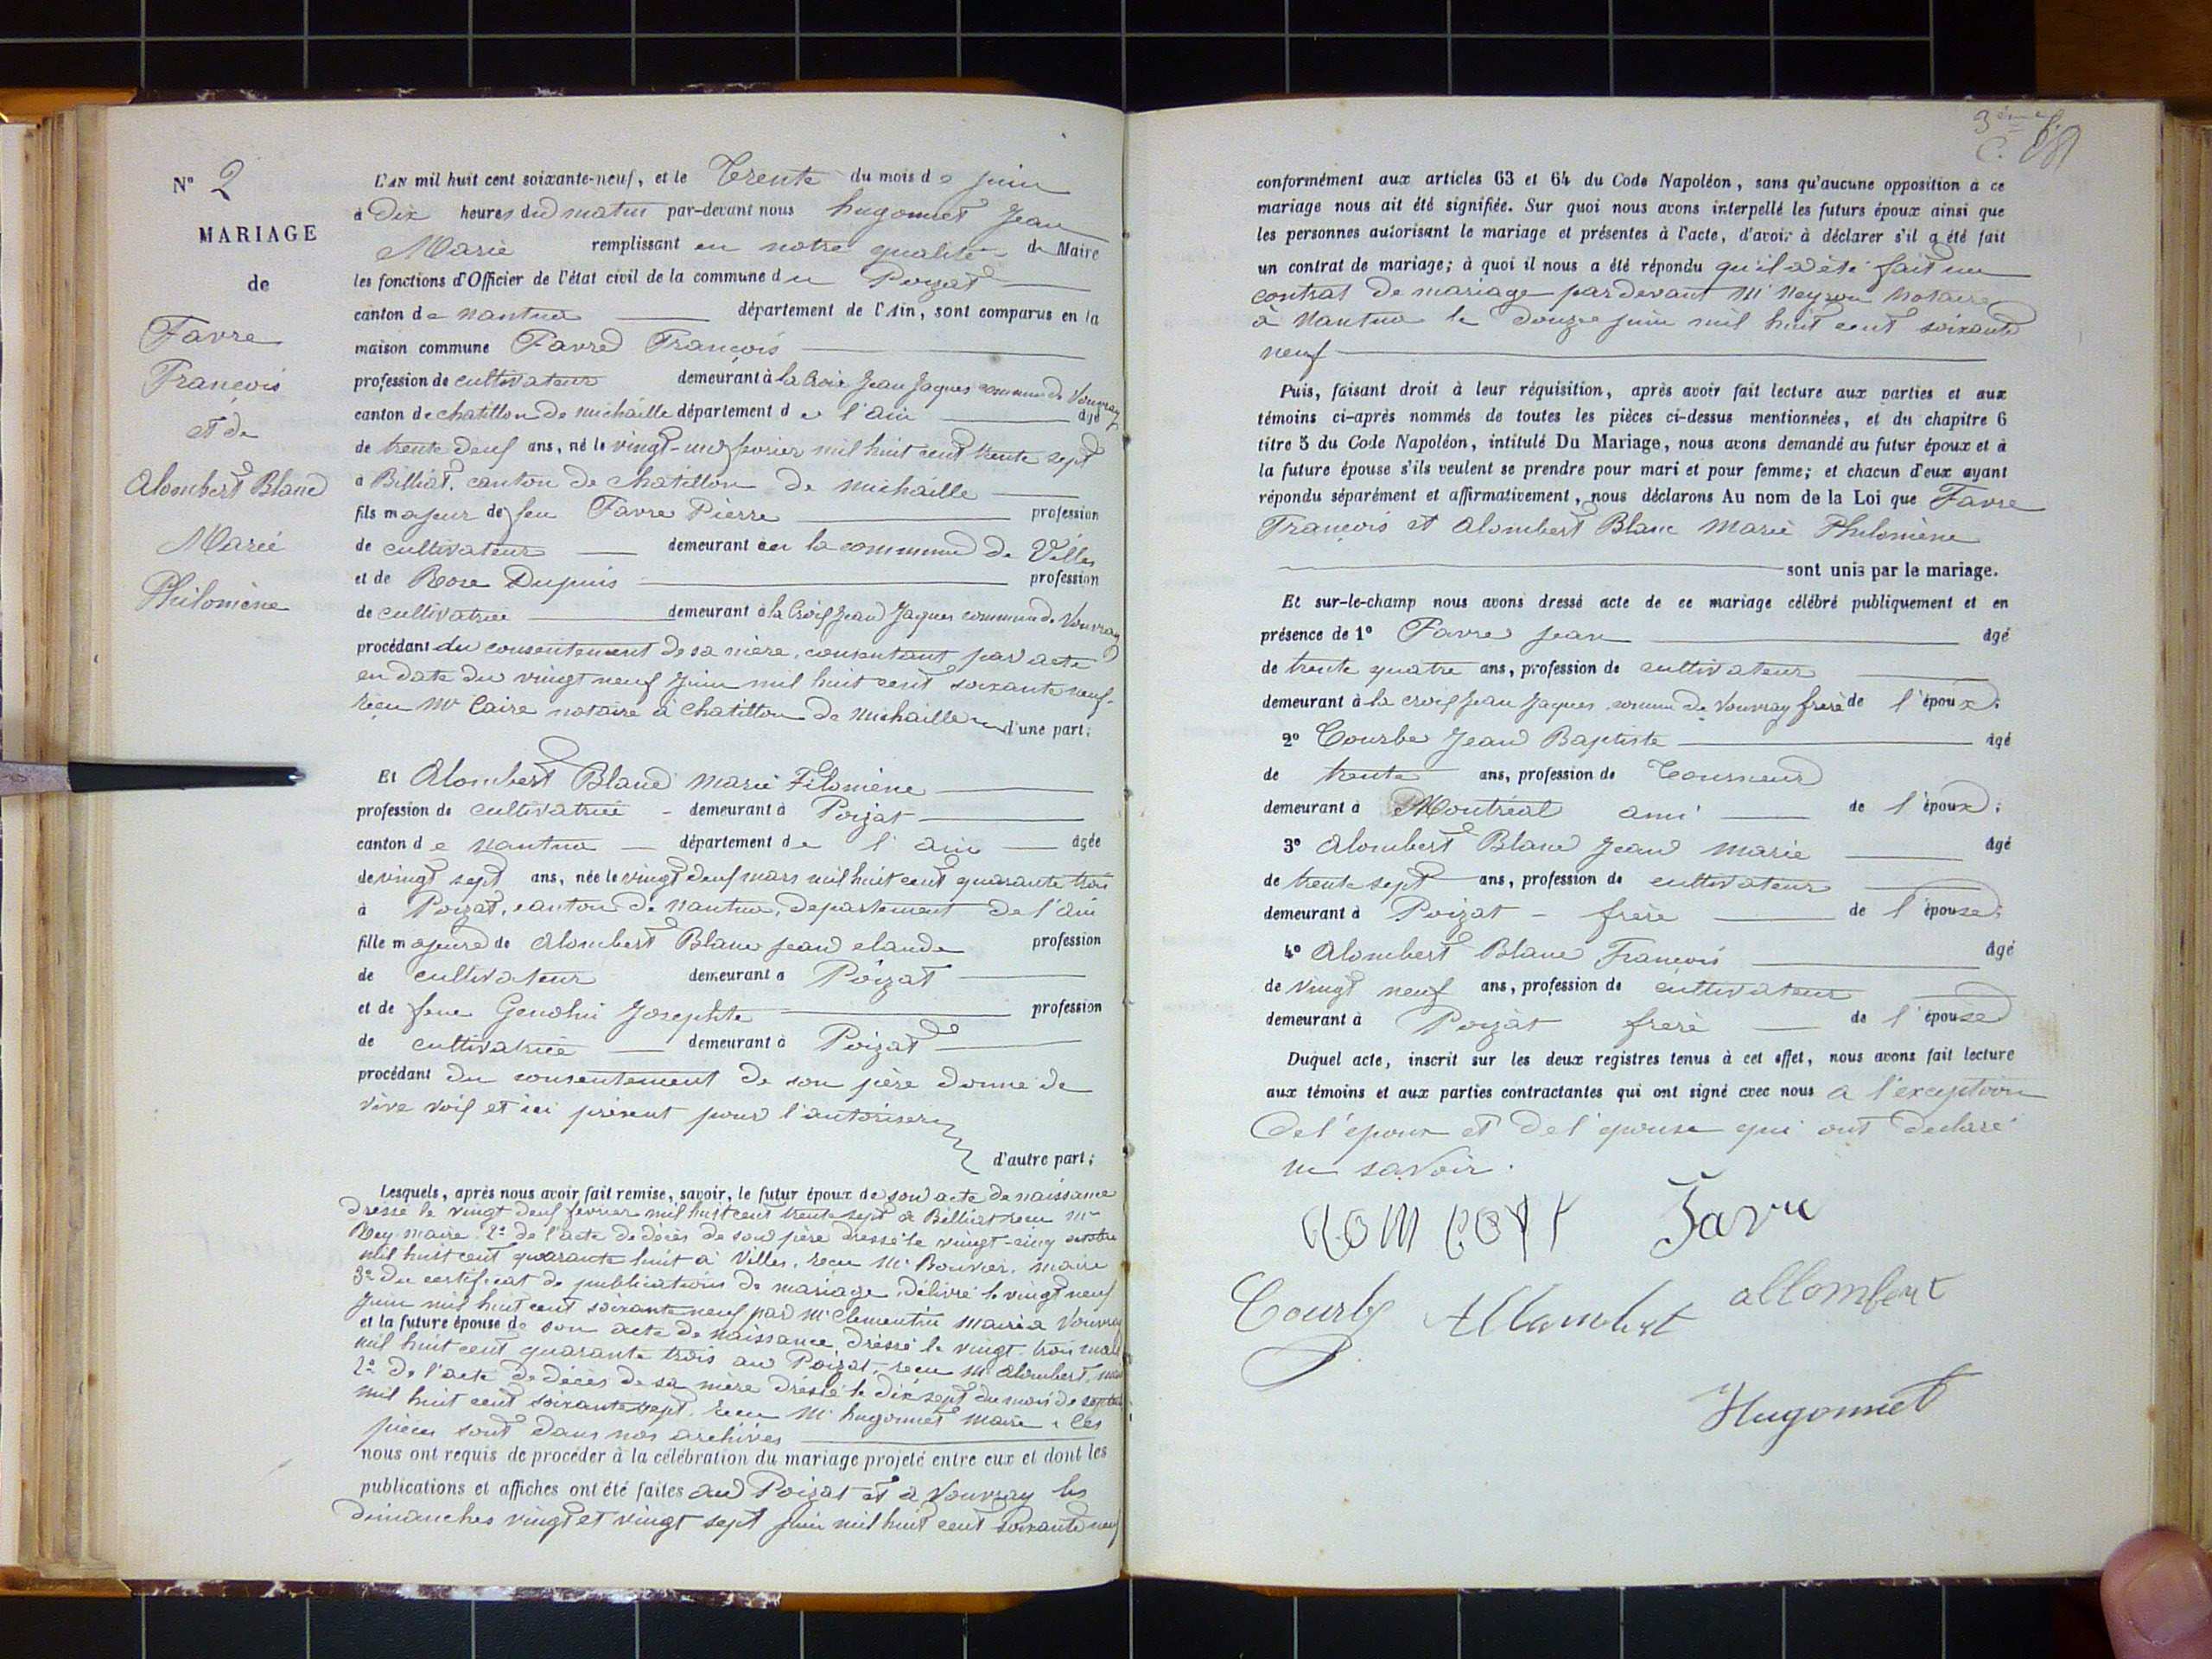 N° 2
MARIAGE
de
Favre
François
et de
Alombert Blanc
Marie
Philomène
L'AN mil huit cent soixante-neuf, et le Trente du mois de juin
à Dix heures du matin par-devant nous hugonnet Jean
Marie remplissant en notre qualité de Maire
les fonctions d'Officier de l'état civil de la commune du Poizat
canton de nantua département de l'Ain, sont comparus en la
maison commune Favre François
profession de cultivateur demeurant à la Croix Jean Jaques commune de Vouvray
canton de chatillon de michaille département de l'ain âgé
de trente deux ans, né le vingt-un fevrier mil huit cent trente sept
à Billiat, canton de chatillon de michaille
fils majeur de feu Favre Pierre profession
de cultivateur demeurant en la commune de Villes
et de Rose Dupuis profession
de cultivatrice demeurant à la Croix Jean Jaques commune de Vouvray
procédant du consentement de sa mère, consentant par acte
en date du vingt neuf juin mil huit cent soixante neuf
reçu Mr Caire notaire à Chatillon de michaille d'une part;
Et Alombert Blanc Marie Filomène
profession de cultivatrice demeurant à Poizat
canton de nantua département de l'ain âgée
de vingt sept ans, née le vingt deux mars mil huit cent quarante trois
à Poizat, canton de nantua, departement de l'ain
fille majeure de Alombert Blanc jean claude profession
de cultivateur demeurant à Poizat
et de feue Josephte profession
de cultivatrice demeurant à Poizat
procédant du consentement de son père donné de
vive voix et ici présent pour l'autoriser
d'autre part;
Lesquels, après nous avoir fait remise, savoir, le futur époux de son acte de naissance
dressé le vingt deux fevrier mil huit cent trente sept à Billiat reçu Mr
Rey maire 2° de l'acte de décès de son père dressé le vingt-cinq octobre
mil huit cent quarante huit à Villes, reçu Mr Bouvier, maire
3° du certificat de publications de mariage, délivré le vingt neuf
juin mil huit cent soixante neuf par Mr Clementin Maire à Vouvray
et la future épouse de son acte de naissance, dressé le vingt-trois mars
mil huit cent quarante trois au Poizat, reçu Mr Alombert,
2° de l'acte de décès de sa mère dréssé le dix sept du mois de
mil huit cent soixante sept, reçu Mr hugonnet maire. Ces
pièces sont dans nos archives
nous ont requis de procéder à la célébration du mariage projeté entre eux et dont les
publications et affiches ont été faites au Poizat et à Vouvray les
dimanches vingt et vingt sept juin mil huit cent soixante neuf
3ème f.
conformément aux articles 63 et 64 du Code Napoléon, sans qu'aucune opposition à ce
mariage nous ait été signifiée. Sur quoi nous avons interpellé les futurs époux ainsi que
les personnes autorisant le mariage et présentes à l'acte, d'avoir à déclarer s'il a été fait
un contrat de mariage; à quoi il nous a été répondu qu'il a été fait un
contrat de mariage par devant Mr Neyron Notaire
à Nantua le Douze juin mil huit cent soixante
neuf
Puis, faisant droit à leur réquisition, après avoir fait lecture aux parties et aux
témoins ci-après nommés de toutes les pièces ci-dessus mentionnées, et du chapitre 6
titre 5 du Code Napoléon, intitulé Du Mariage, nous avons demandé au futur époux et à
la future épouse s'ils veulent se prendre pour mari et pour femme; et chacun d'eux ayant
répondu séparément et affirmativement, nous déclarons Au nom de la Loi que Favre
François et Alombert Blanc Marie Philomène
sont unis par le mariage.
Et sur-le-champ nous avons dressé acte de ce mariage célébré publiquement et en
présence de 1° Favre Jean âgé
de trente quatre ans, profession de cultivateur
demeurant à la croix jean jaques, commune de Vouvray frère de l'époux;
2° Courbe Jean Baptiste âgé
de trente ans, profession de Tourneur
demeurant à Montréal ami de l'époux;
3° Alombert Blanc Jean Marie âgé
de trente sept ans, profession de cultivateur
demeurant à Poizat - frère de l'épouse;
4° Alombert Blanc François âgé
de vingt neuf ans, profession de cultivateur
demeurant à Poizat frère de l'épouse
Duquel acte, inscrit sur les deux registres tenus à cet effet, nous avons fait lecture
aux témoins et aux parties contractantes qui ont signé avec nous a l'exception
de l'époux et de l'epouse qui ont declaré
ne savoir.
Favre
Courbe Allombert allombert
Hugonnet